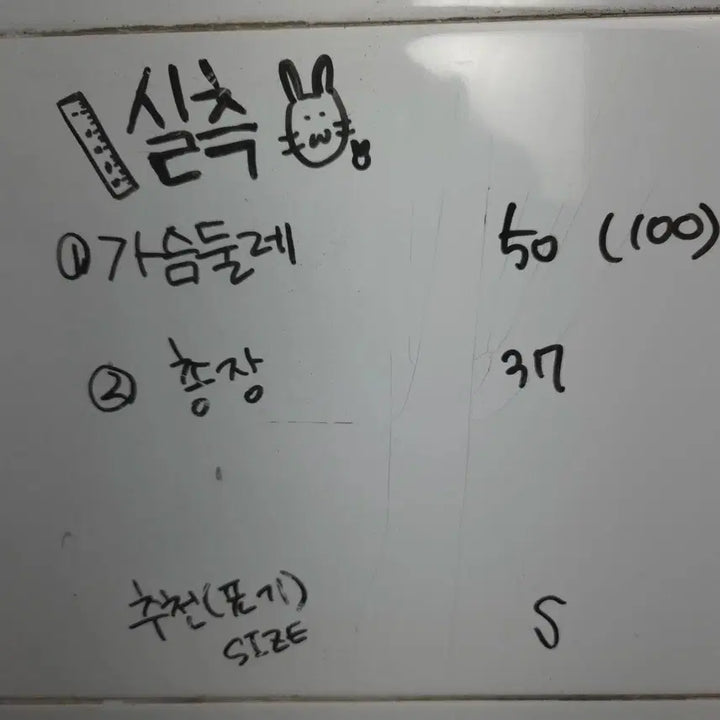 실측
① 가슴둘레 50 (100)
② 총장 37
추천(표기) S
SIZE